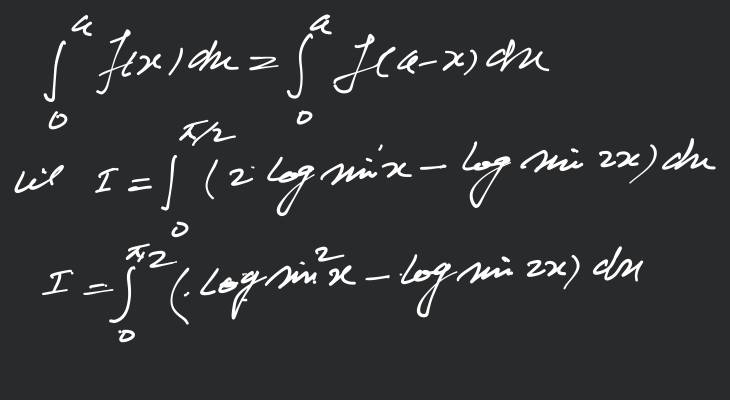 ∫₀ᵃ f(x) dx = ∫₀ᵃ f(a-x) dx
let I = ∫₀^(π/2) (2 log sin x - log sin 2x) dx
I = ∫₀^(π/2) (log sin² x - log sin 2x) dx